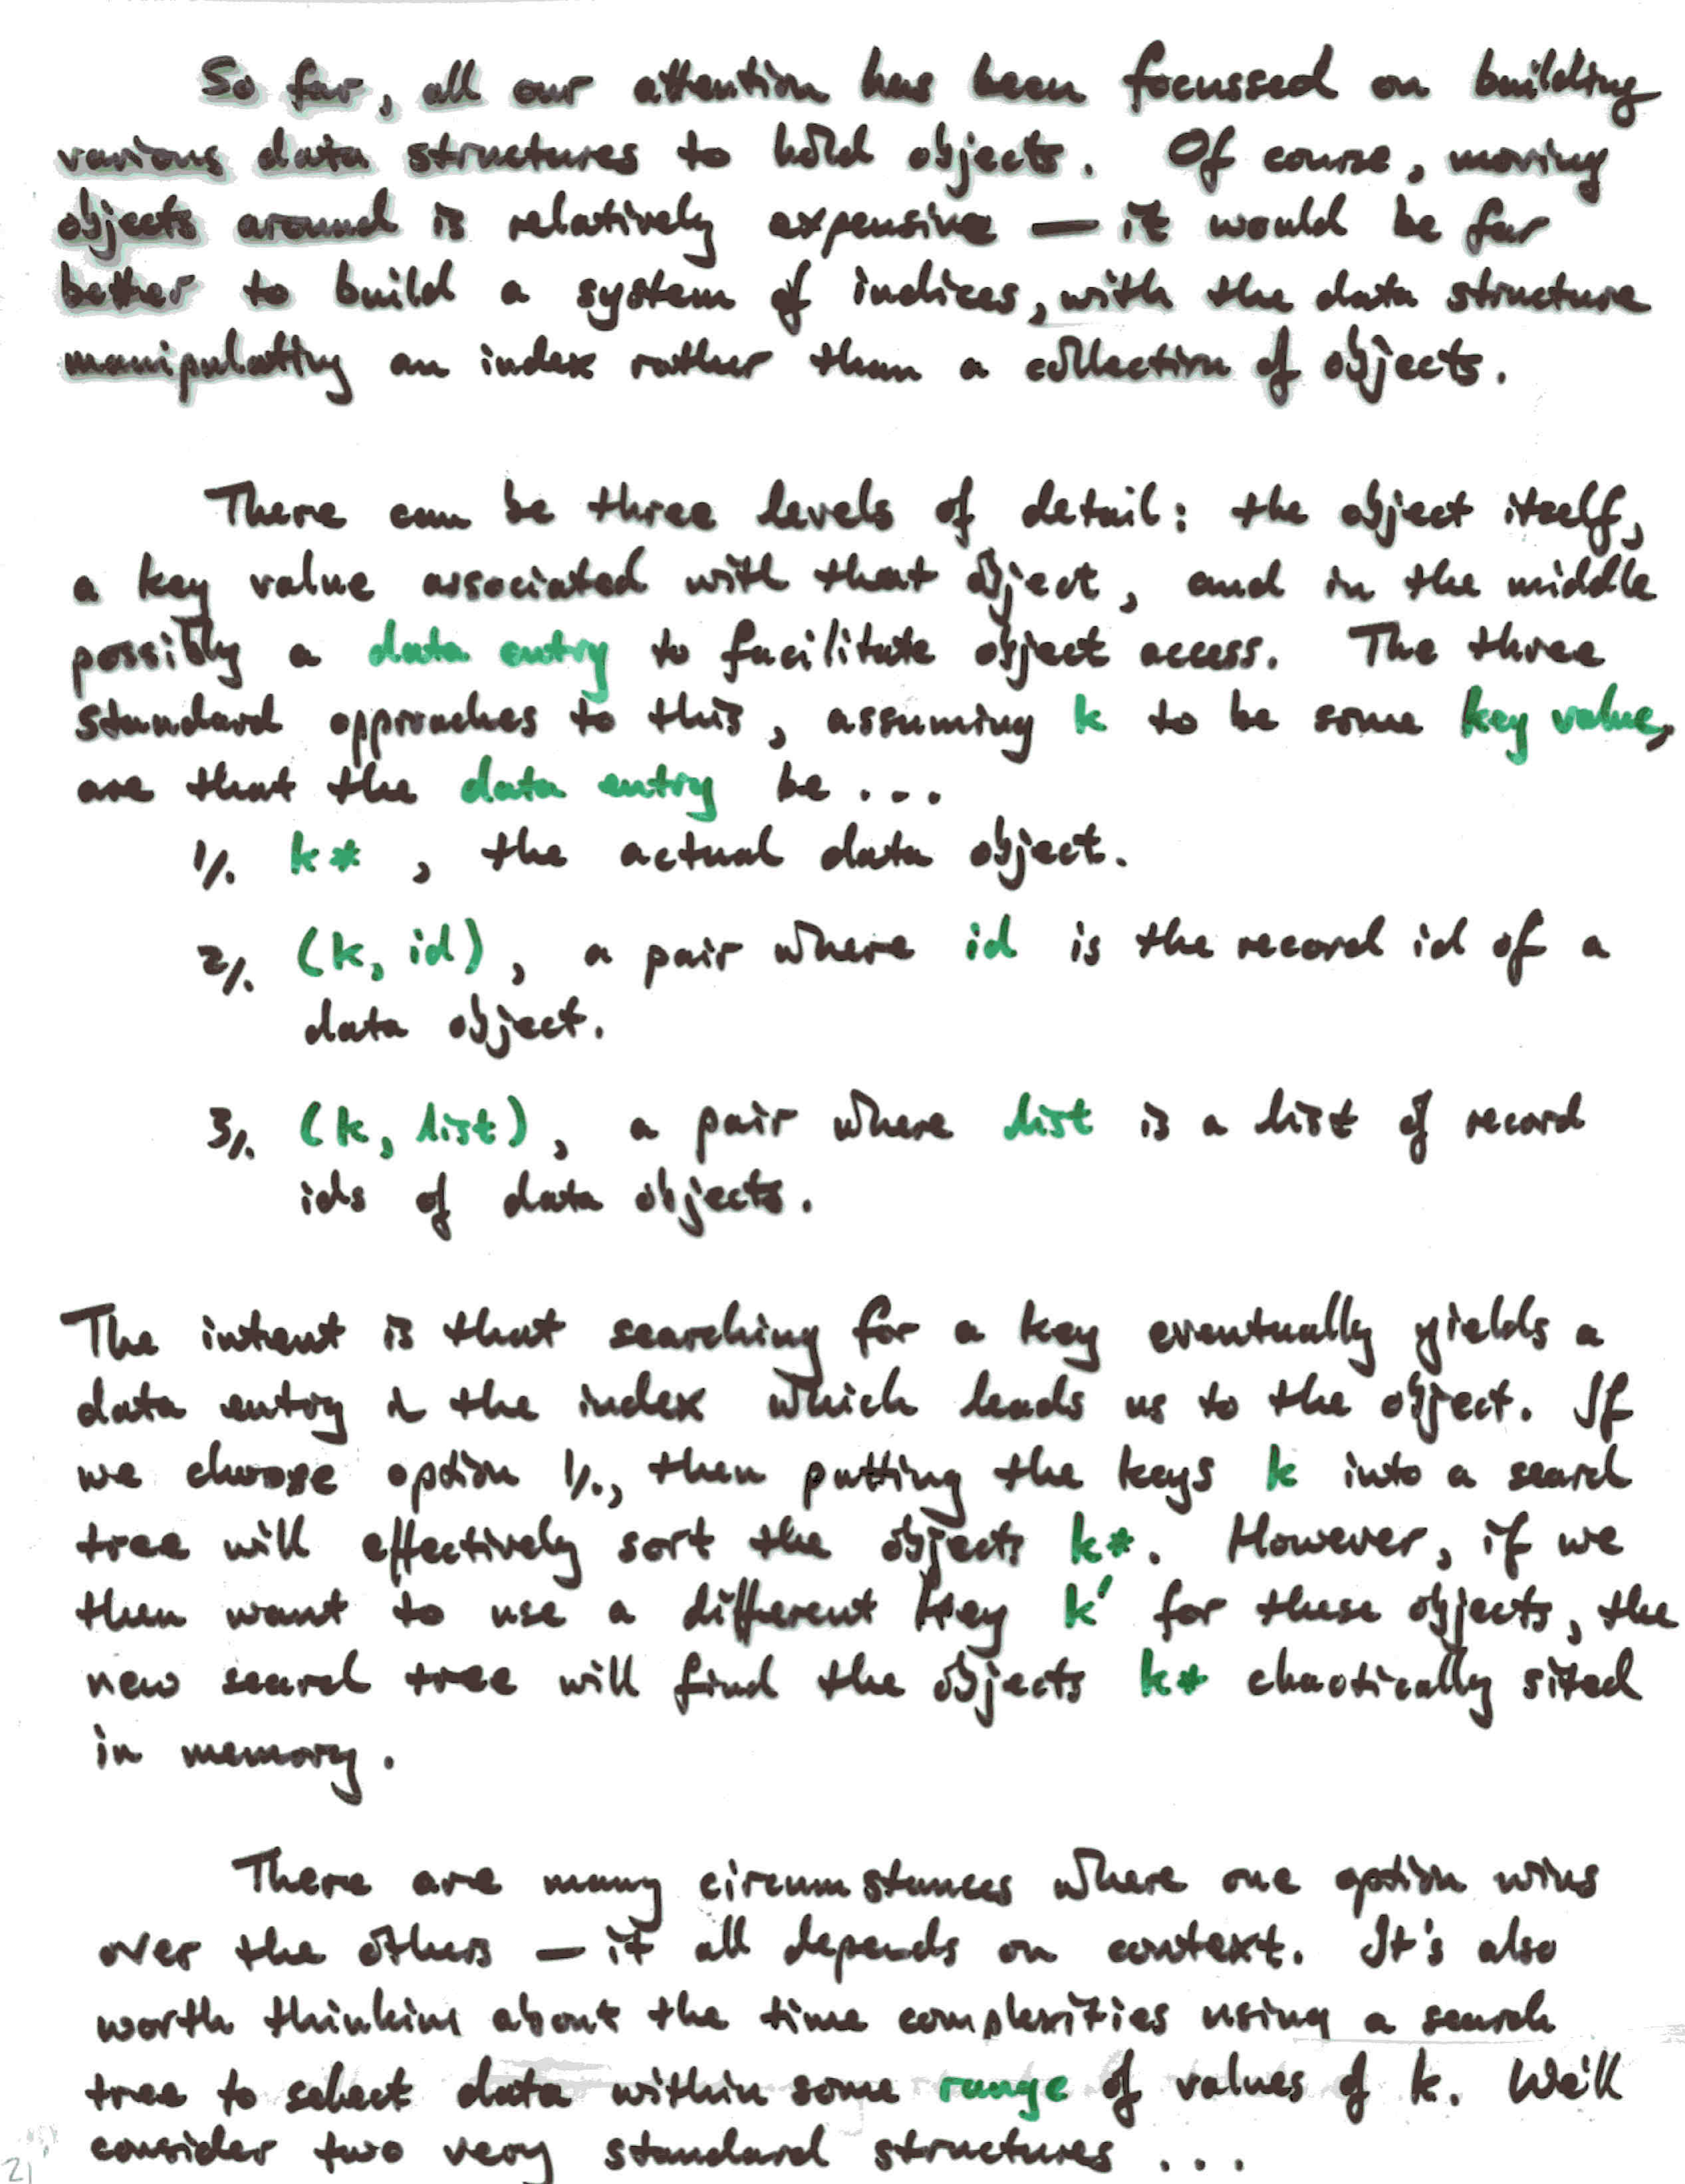 So far, all our attention has been focussed on building
various data structures to hold objects. Of course, moving
objects around is relatively expensive — it would be far
better to build a system of indices, with the data structure
manipulating an index rather than a collection of objects.
There can be three levels of detail: the object itself,
a key value associated with that object, and in the middle
possibly a data entry to facilitate object access. The three
standard approaches to this, assuming k to be some key value,
are that the data entry be ...
1/. k* , the actual data object.
2/. (k, id) , a pair where id is the record id of a
data object.
3/. (k, list) , a pair where list is a list of record
ids of data objects.
The intent is that searching for a key eventually yields a
data entry in the index which leads us to the object. If
we choose option 1/., then putting the keys k into a search
tree will effectively sort the objects k*. However, if we
then want to use a different key k' for these objects, the
new search tree will find the objects k* chaotically sited
in memory.
There are many circumstances where one option wins
over the others — it all depends on context. It's also
worth thinking about the time complexities using a search
tree to select data within some range of values of k. We'll
consider two very standard structures ...
21